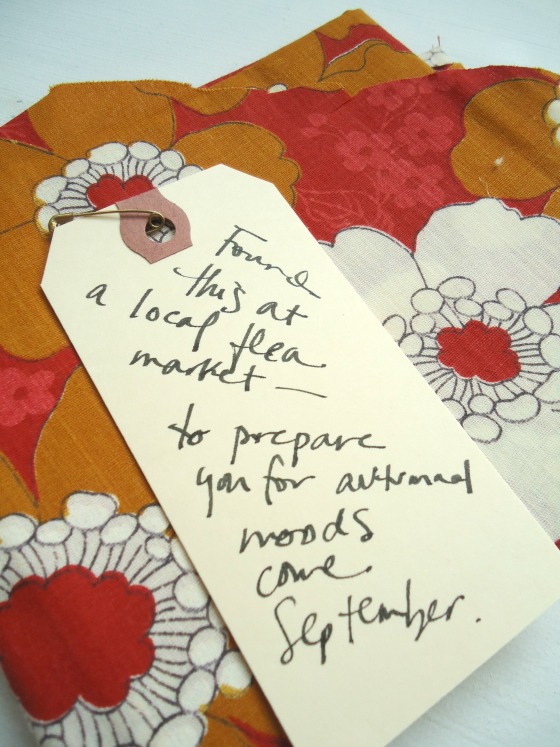 Found
this at
a local flea
market —
to prepare
you for autumnal
moods
come
September.